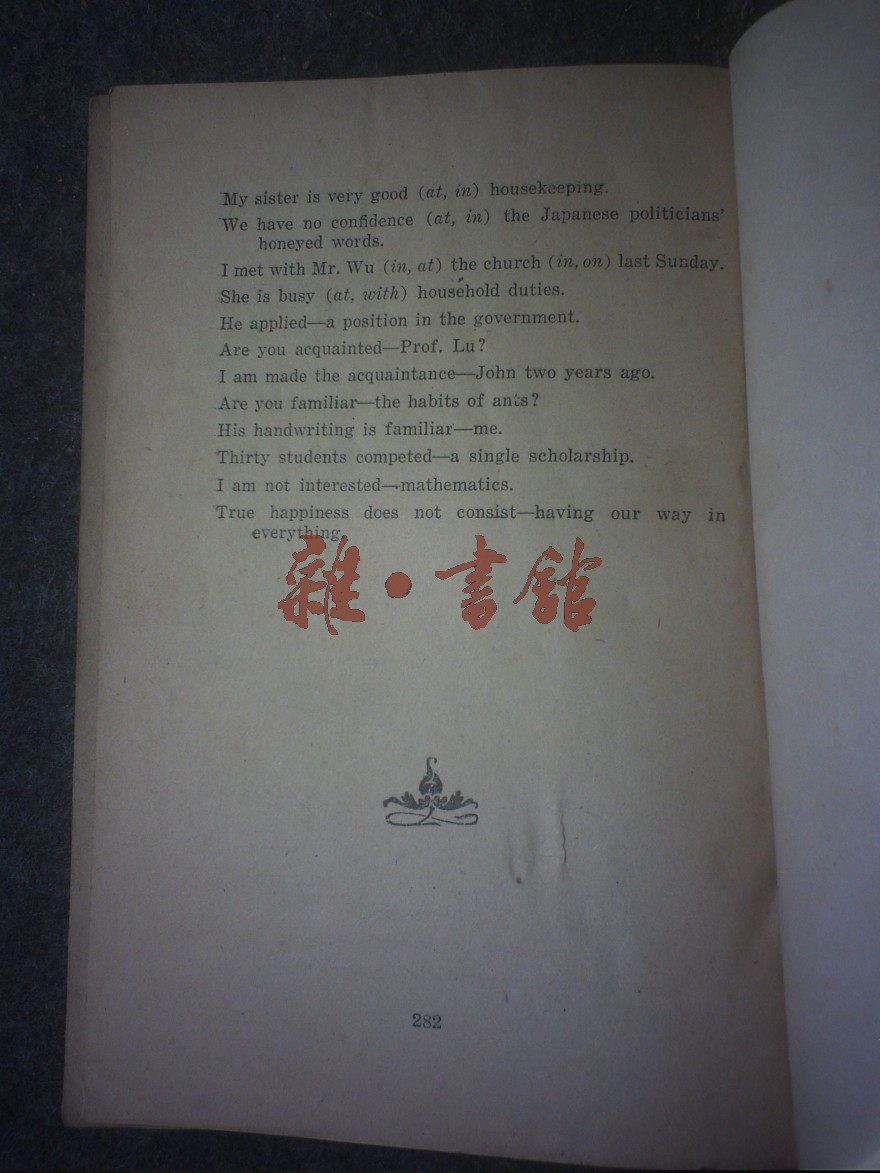 My sister is very good (at, in) housekeeping.
We have no confidence (at, in) the Japanese politicians'
honeyed words.
I met with Mr. Wu (in, at) the church (in, on) last Sunday.
She is busy (at, with) household duties.
He applied—a position in the government.
Are you acquainted—Prof. Lu?
I am made the acquaintance—John two years ago.
Are you familiar—the habits of ants?
His handwriting is familiar—me.
Thirty students competed—a single scholarship.
I am not interested—mathematics.
True happiness does not consist—having our way in
everything.
雜•書館
282